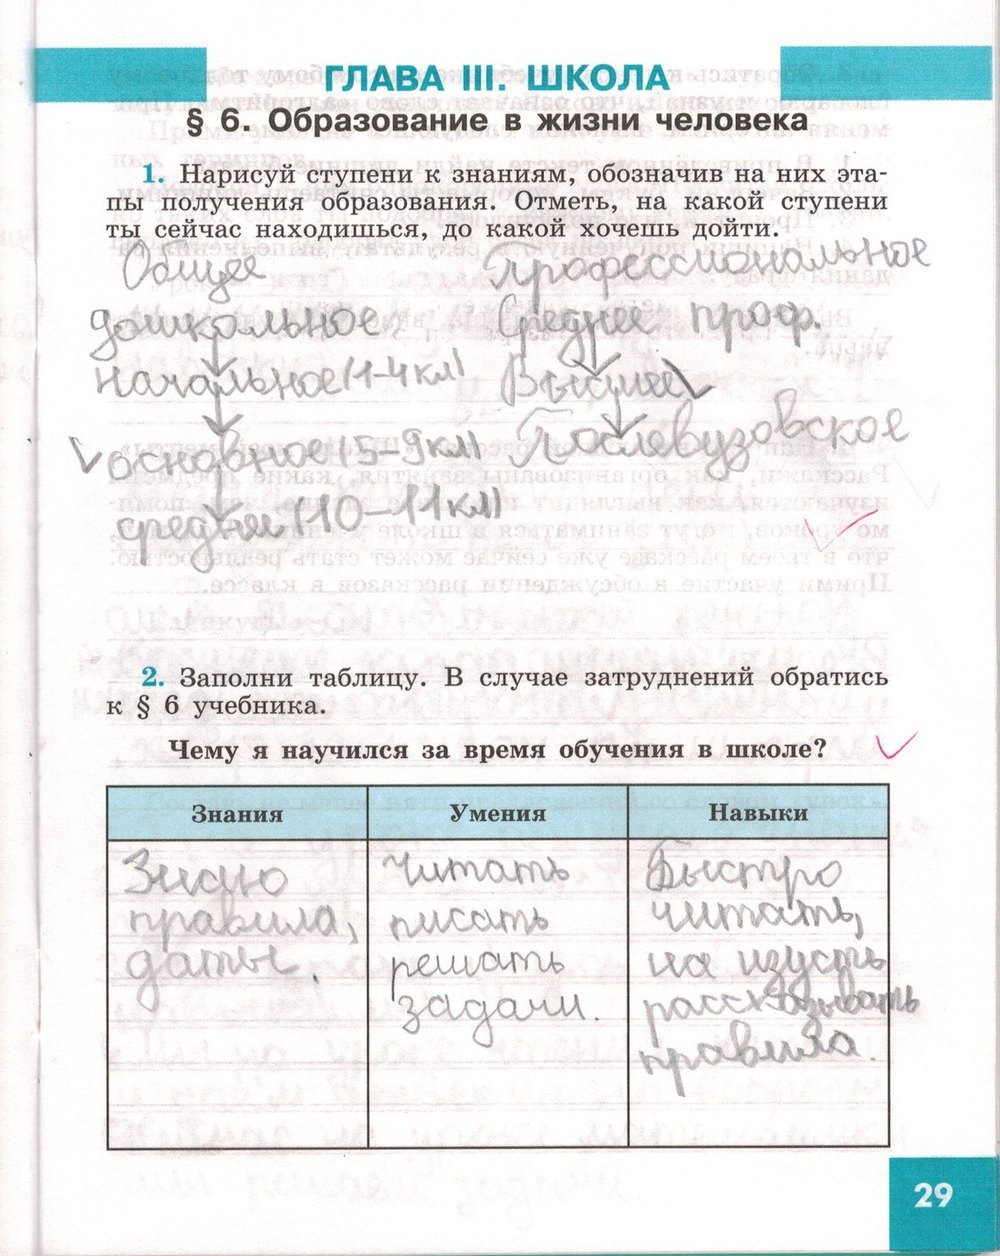 ГЛАВА III. ШКОЛА
§ 6. Образование в жизни человека
1. Нарисуй ступени к знаниям, обозначив на них эта-
пы получения образования. Отметь, на какой ступени
ты сейчас находишься, до какой хочешь дойти.
Общее
дошкольное
начальное (1-4 кл)
основное (5-9 кл)
среднее (10-11 кл)
Профессиональное
Среднее проф.
Высшее
Послевузовское
2. Заполни таблицу. В случае затруднений обратись
к § 6 учебника.
Чему я научился за время обучения в школе?
Знания
Умения
Навыки
Знаю
правила,
даты.
Читать
писать
решать
задачи.
Быстро
читать,
на изусть
рассказывать
правила.
29